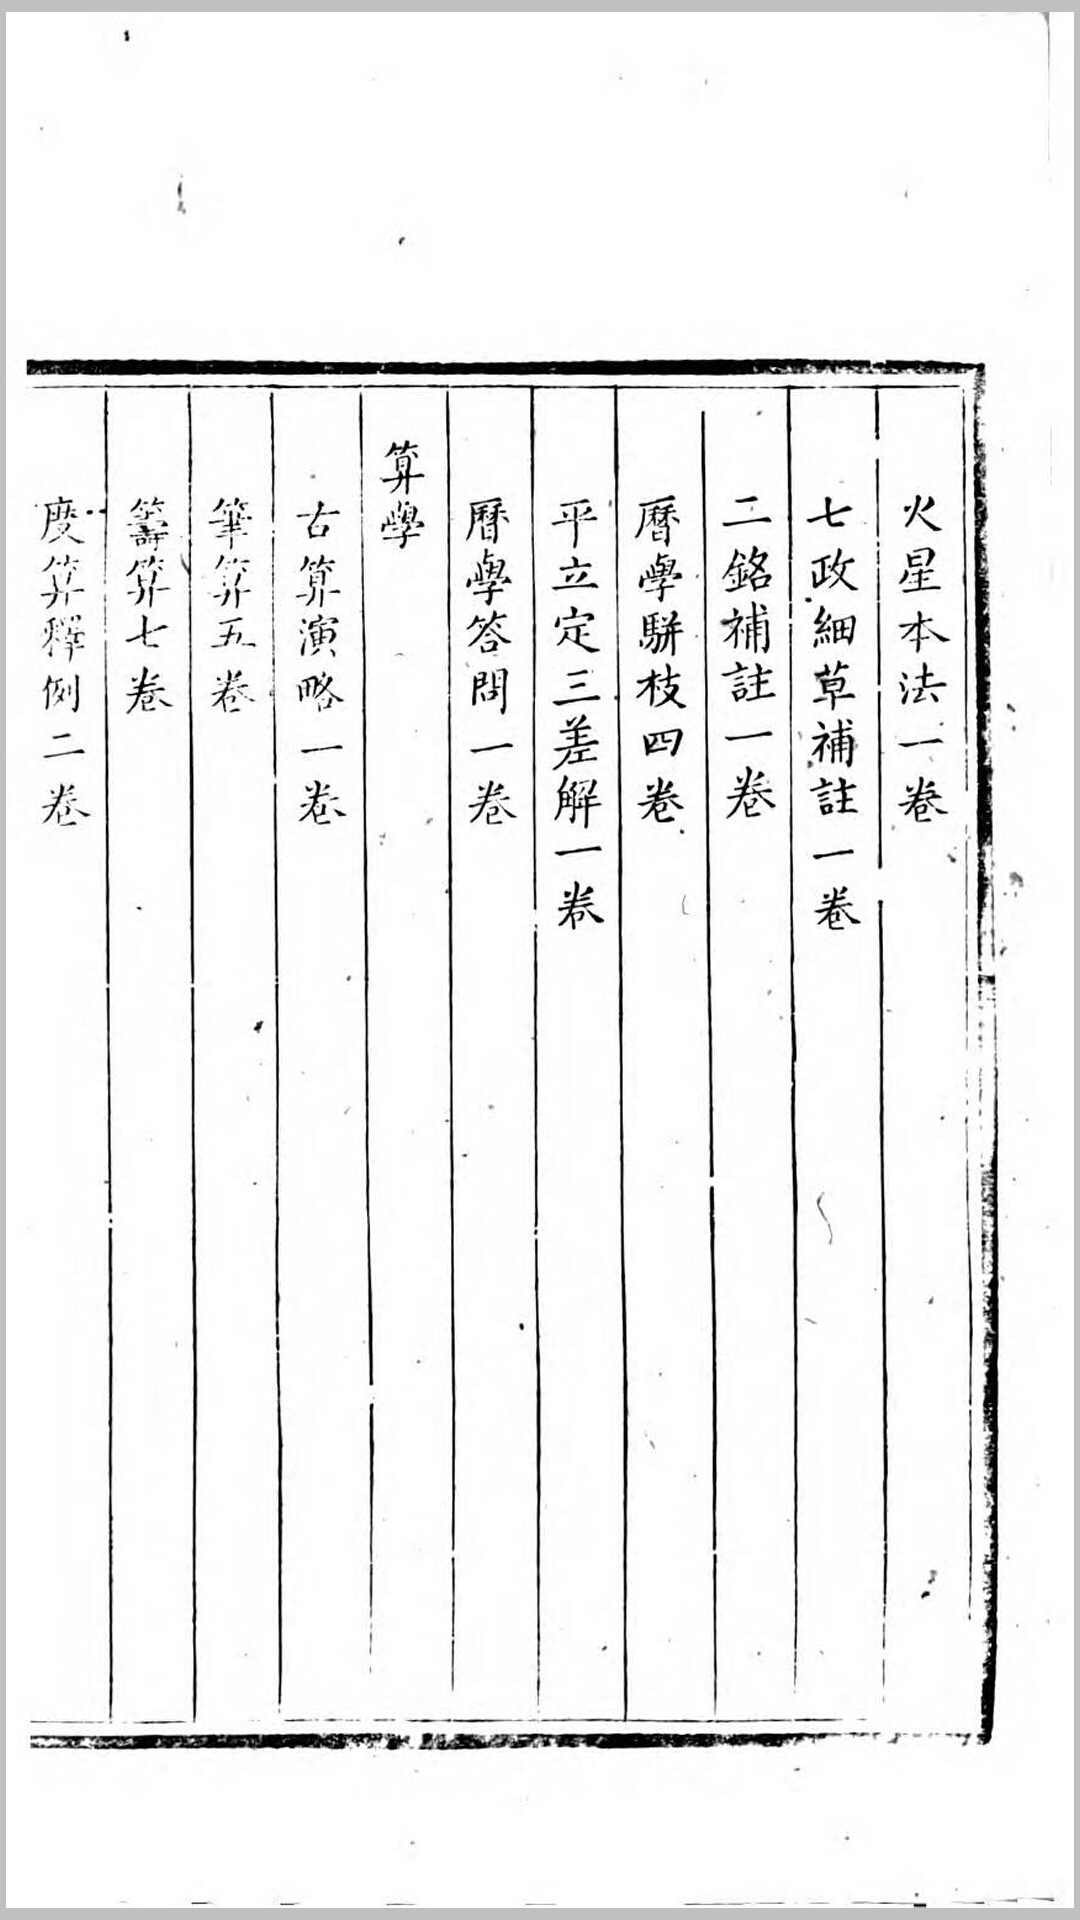 火星本法一卷
七政細草補註一卷
二銘補註一卷
曆學駢枝四卷
平立定三差觧一卷
曆學答問一卷
算學
古算演略一卷
筆算五卷
籌算七卷
度算釋例二卷